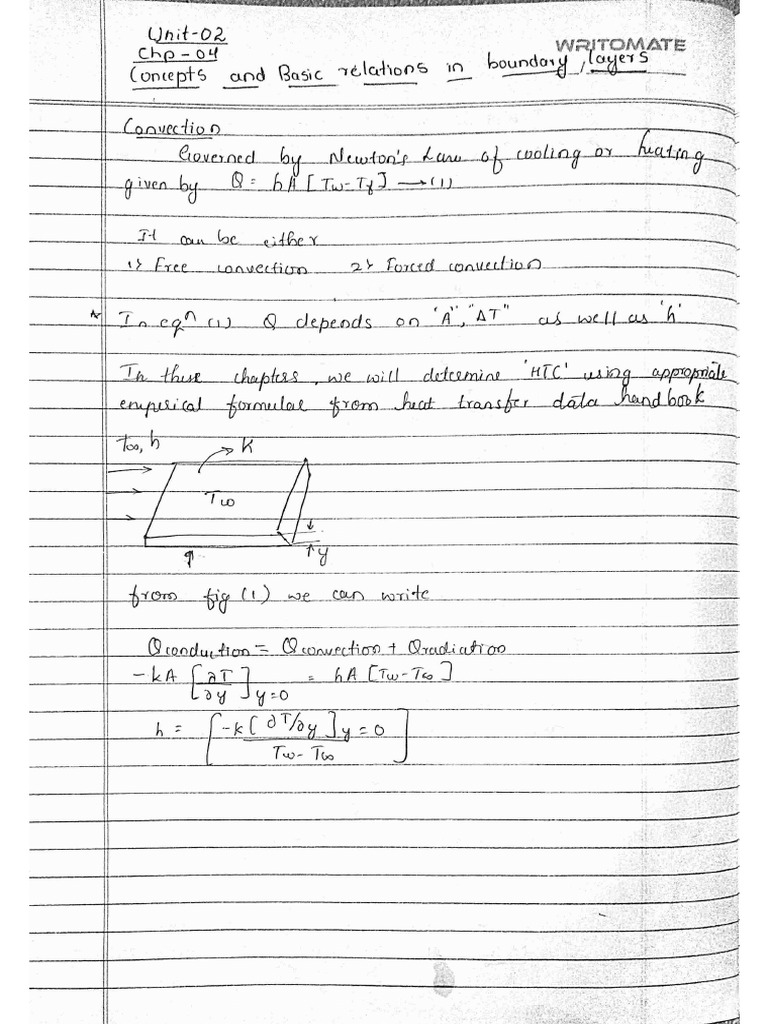 Unit-02
Chp-04
WRITOMATE
Concepts and Basic relations in boundary layers
Convection
Governed by Newton's Law of cooling or heating
given by Q = hA [Tw-Tf] → (1)
It can be either
1> Free convection 2> Forced convection
* In eqn (1) Q depends on 'A', "ΔT" as well as 'h'
In these chapters, we will determine 'HTC' using appropriate
emperical formulae from heat transfer data handbook
T∞, h
K
Tw
y
from fig (1) we can write
Qconduction = Qconvection + Qradiation
-kA [∂T/∂y]y=0 = hA [Tw-T∞]
h = [-k[∂T/∂y]y=0 / Tw-T∞]